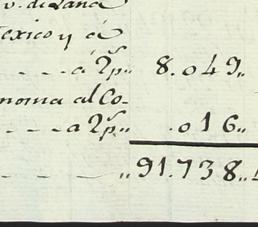 v. de Zana
exico y á
. - . - á 2ps,, 8.049,,
noma al Co-
- - - - a 2ps,, .016,,
- - - ,,91.738,,